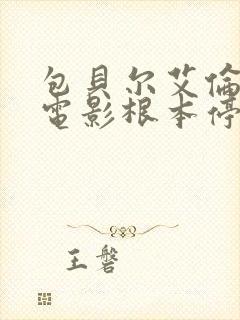 包貝尔艾倫
電影根本停
王磐